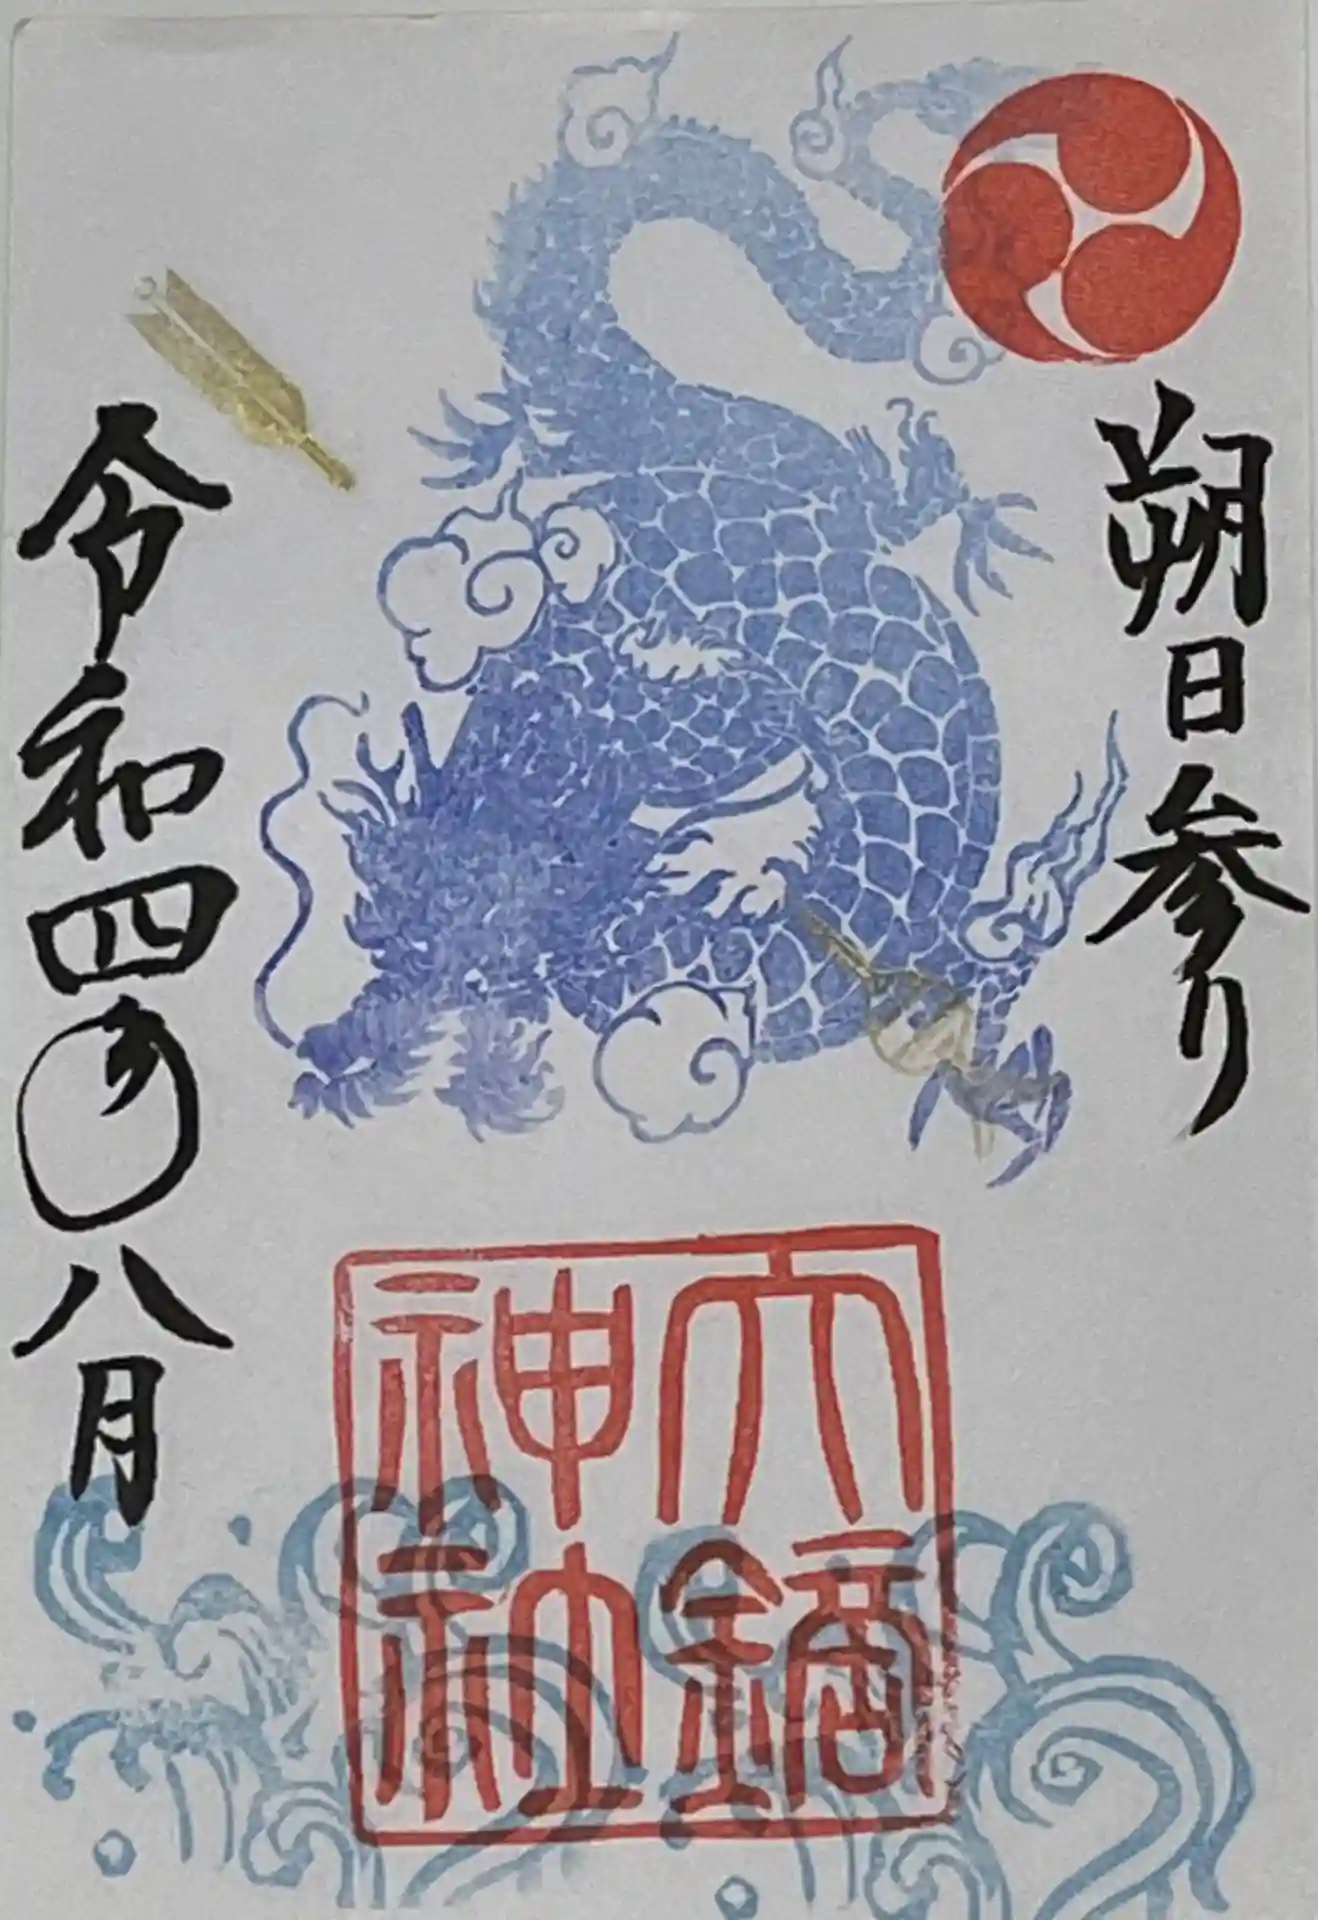 朔日参り
六鏑神社
令和四年八月